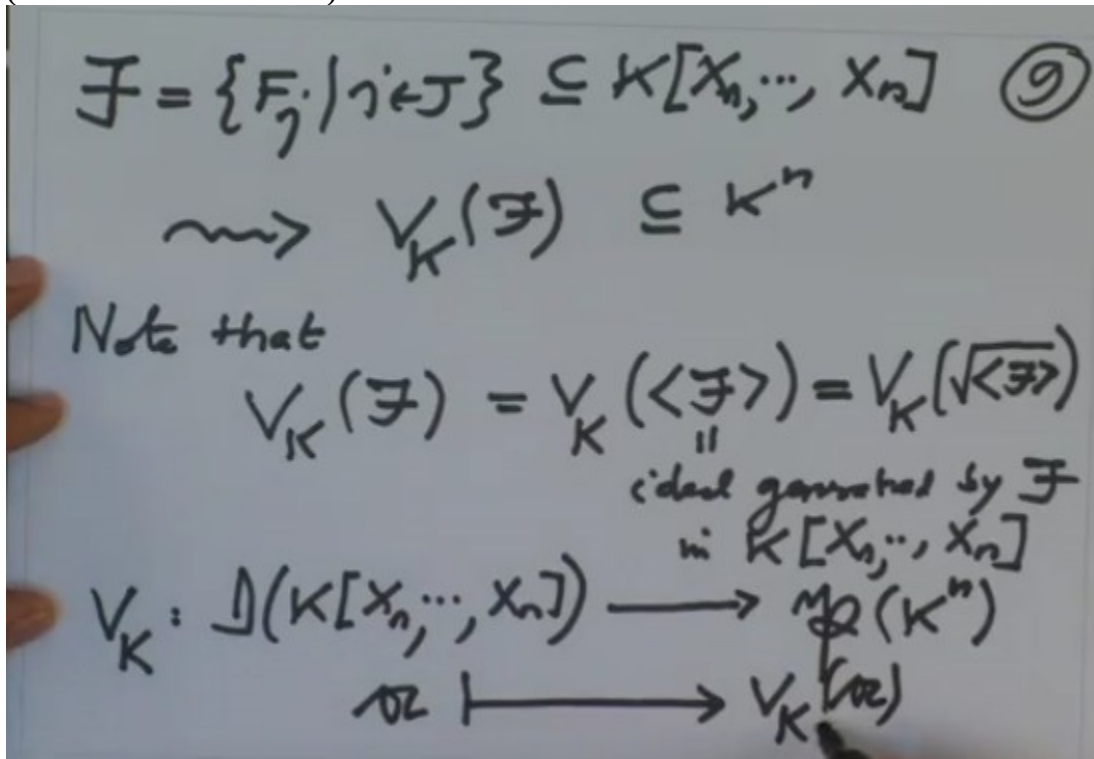 ℱ = {F_j | j ∈ J} ⊆ K[X_1, ⋯, X_n] ⑨
⇝ V_K(ℱ) ⊆ K^n
Note that
V_K(ℱ) = V_K(<ℱ>) = V_K(√<ℱ>)
||
ideal generated by ℱ
in K[X_1, ⋯, X_n]
V_K : ℐ(K[X_1, ⋯, X_n]) ⟶ 𝔓(K^n)
𝔞 ⟼ V_K(𝔞)